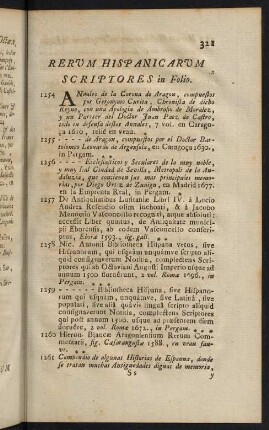 321
RERVM HISPANICARVM
SCRIPTORES in Folio.
1254 ANnales de la Corona de Aragon, compuestos
por Geronymo Curita, Chronista de dicho
Reyno, con una Apologia de Ambrosio de Morales,
y un Parecer del Doctor Juan Paez de Castro,
todo en defensa destos Annales, 7 vol. en Carago-
ça 1610, relié en veau.
1255 - - - - de Aragon, compuestos por el Doctor Bar-
tolomeo Leonardo de Argensola, en Caragoça 1630,
in Pergam.
1256 - - - - Ecclesiasticos y Seculares de la muy noble,
y muy leal Ciudad de Sevilla, Metropoli de la An-
daluzia, que contienen sus mas principales memo-
rias, por Diego Ortiz de Zuñiga, en Madrid 1677.
en la Emprenta Real, in Pergam.
1257 De Antiquitatibus Lusitaniæ Libri IV. à Lucio
Andrea Resendio olim inchoati, & à Jacobo
Menœtio Vasconcello recogniti, atque absoluti;
accessit Liber quintus, de Antiquitate munici-
pii Eborensis, ab eodem Vasconcello conscri-
ptus, Eboræ 1593., lig. gall.
1258 Nic. Antonii Bibliotheca Hispana vetus, sive
Hispanorum, qui usquam unquamve scripto ali-
quid consignaverunt Notitia, complectens Scri-
ptores qui ab Octaviani Augusti Imperio usque ad
annum 1500 floruerunt, 2 vol. Romæ 1696., in
Pergam.
1259 - - - - Bibliotheca Hispana, sive Hispano-
rum qui usquam, unquamve, sive Latinâ, sive
populari, sive aliâ quâvis linguâ scripto aliquid
consignaverunt Notitia, complectens Scriptores
qui post annum 1500. usque ad præsentem diem
floruere, 2 vol. Romæ 1672., in Pergam.
1260 Hieron. Blancæ Aragonensium Rerum Com-
mentarii, fig. Cæsaraugustæ 1588., en veau fau-
ve.
1261 Compendio de algunas Historias de Espanna, donde
se tratan muchas Antiguedades dignas de memoria,
S s
y